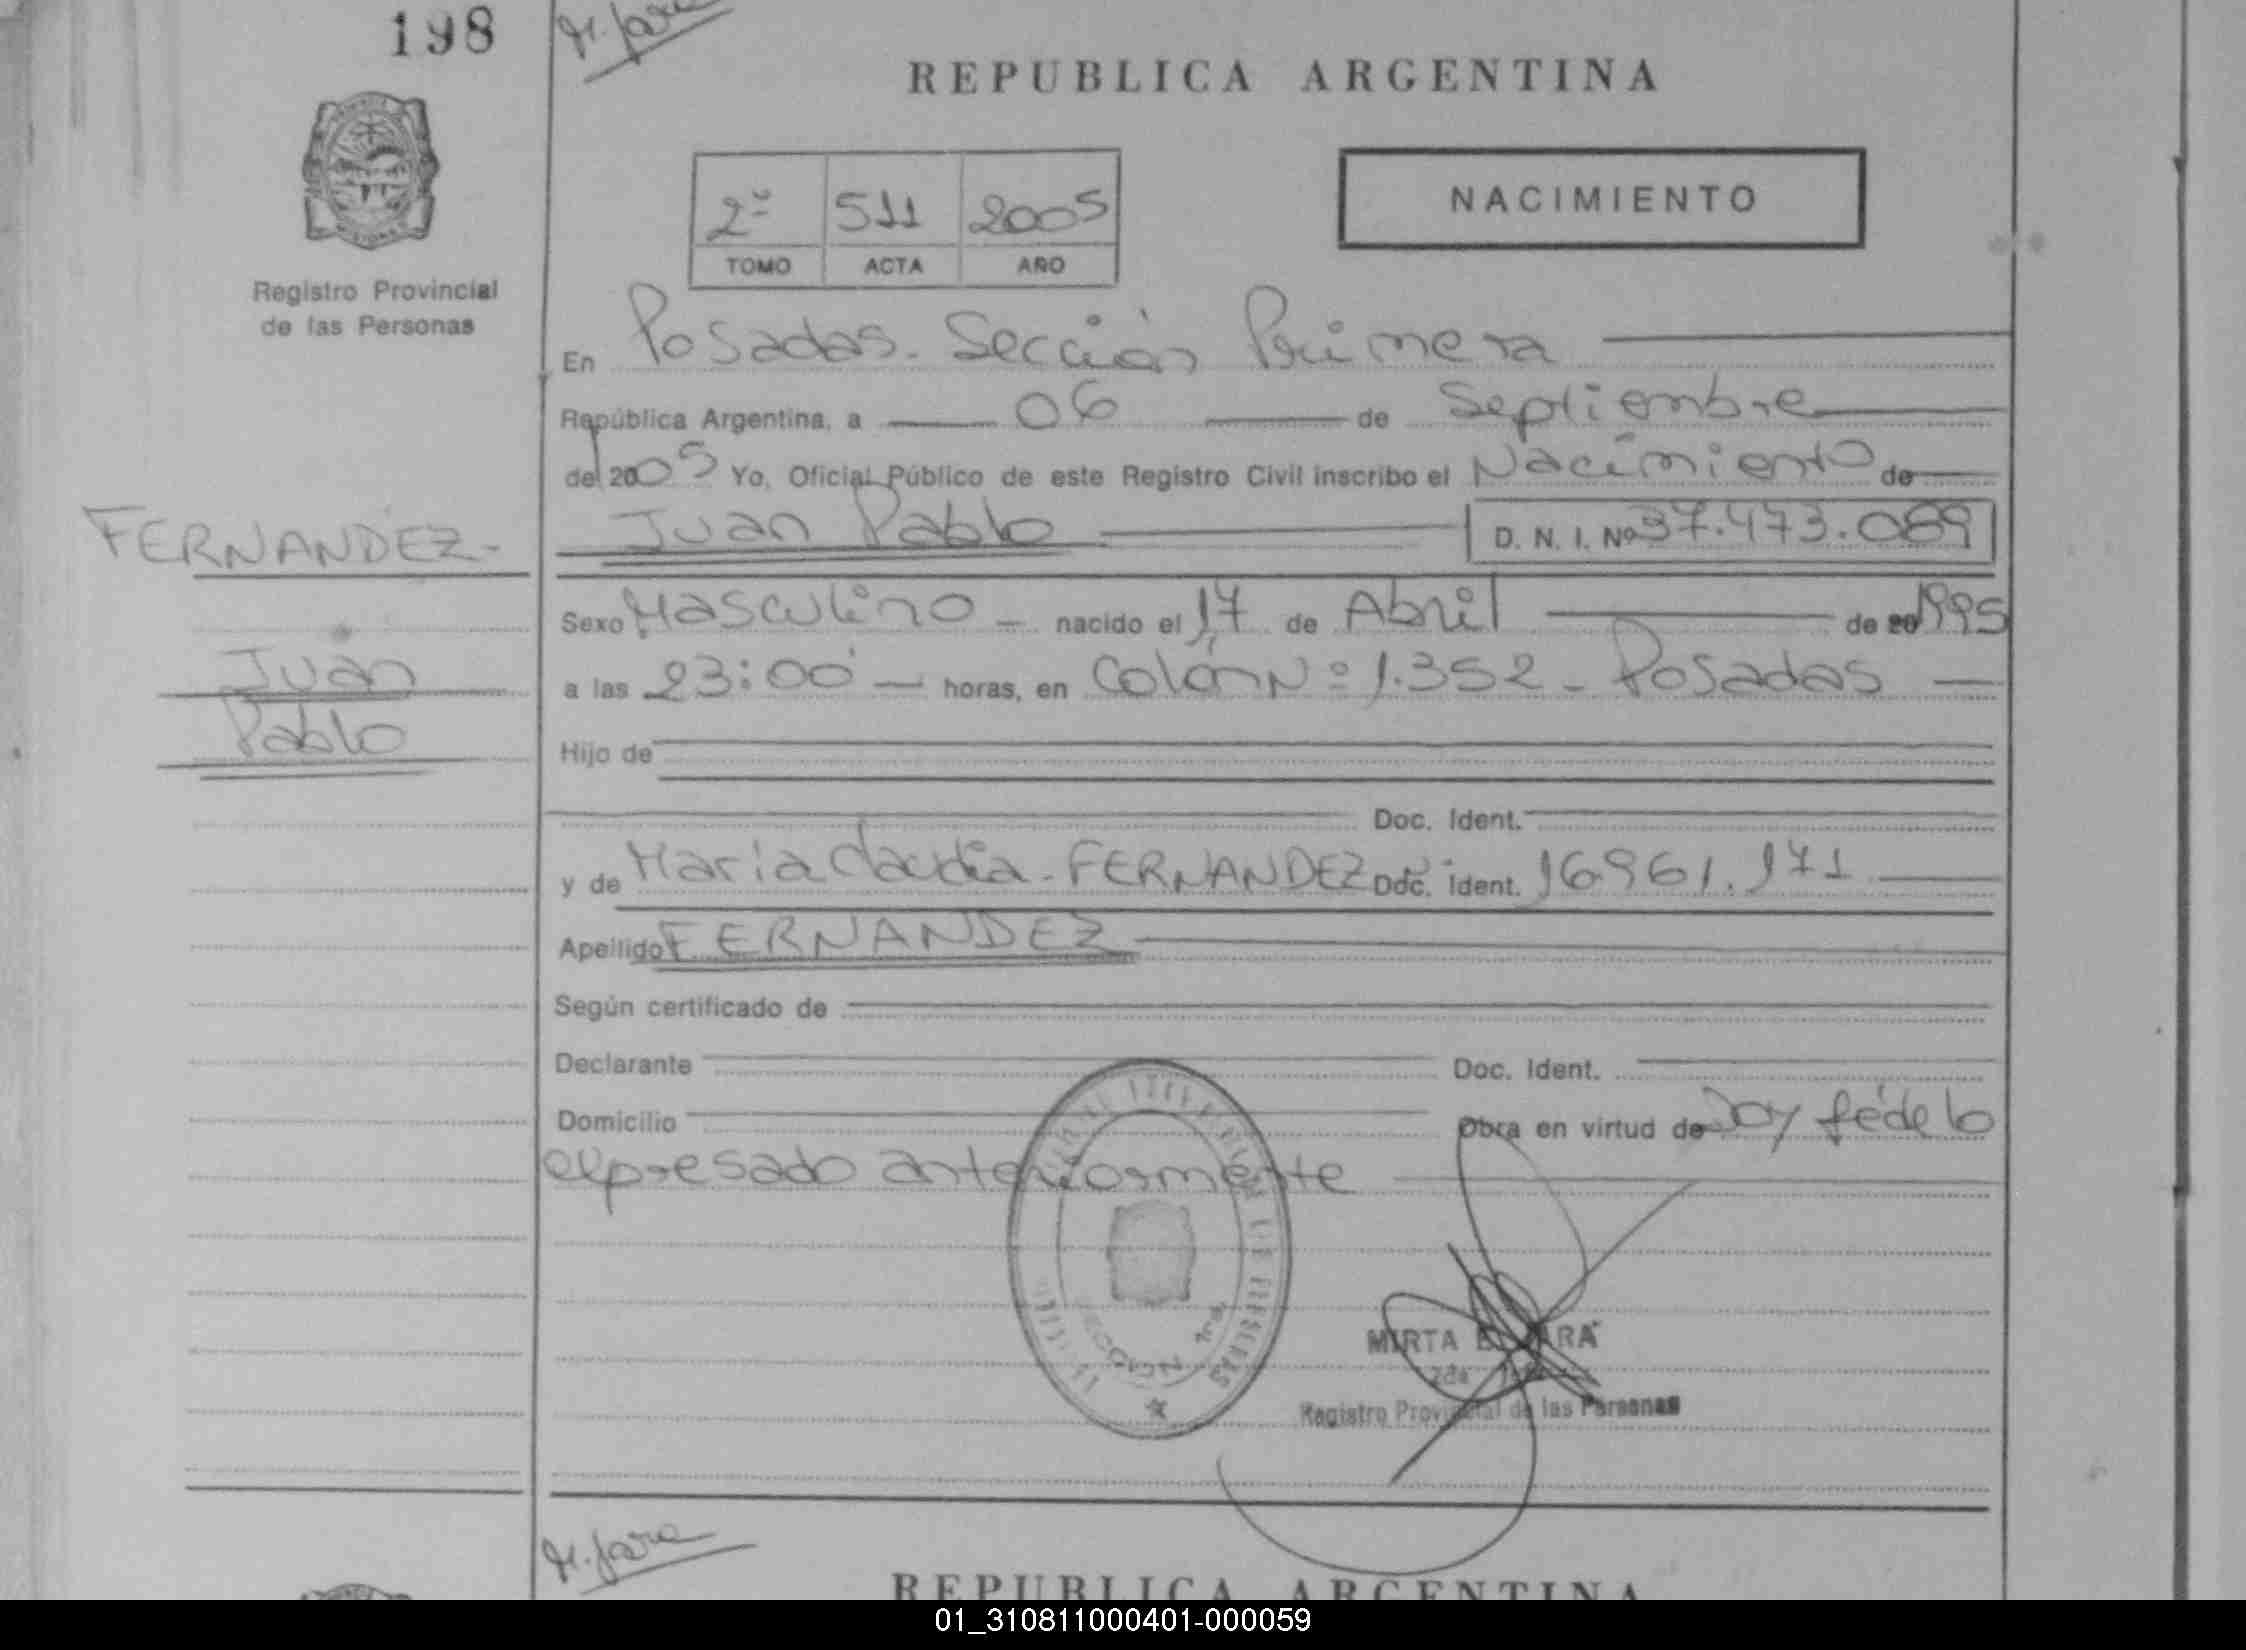 198
M. Jara
REPUBLICA ARGENTINA
2º 511 2005
TOMO ACTA AÑO
NACIMIENTO
Registro Provincial
de las Personas
En Posadas. Sección Primera
República Argentina, a 06 de Septiembre
del 2005 Yo, Oficial Público de este Registro Civil inscribo el Nacimiento de
Juan Pablo D. N. I. Nº 37.473.089
FERNANDEZ-
Juan
Pablo
Sexo Masculino - nacido el 17 de Abril de 20 1995
a las 23:00 - horas, en Colón Nº 1.352 - Posadas -
Hijo de
Doc. Ident.
y de María Claudia - FERNANDEZ Doc. Ident. 16961.171
Apellido FERNANDEZ
Según certificado de
Declarante Doc. Ident.
Domicilio Obra en virtud de Doy fé de lo
expresado anteriormente
SECCION 1ra
MIRTA E. JARA
Registro Provincial de las Personas
M. Jara
REPUBLICA ARGENTINA
01_310811000401-000059